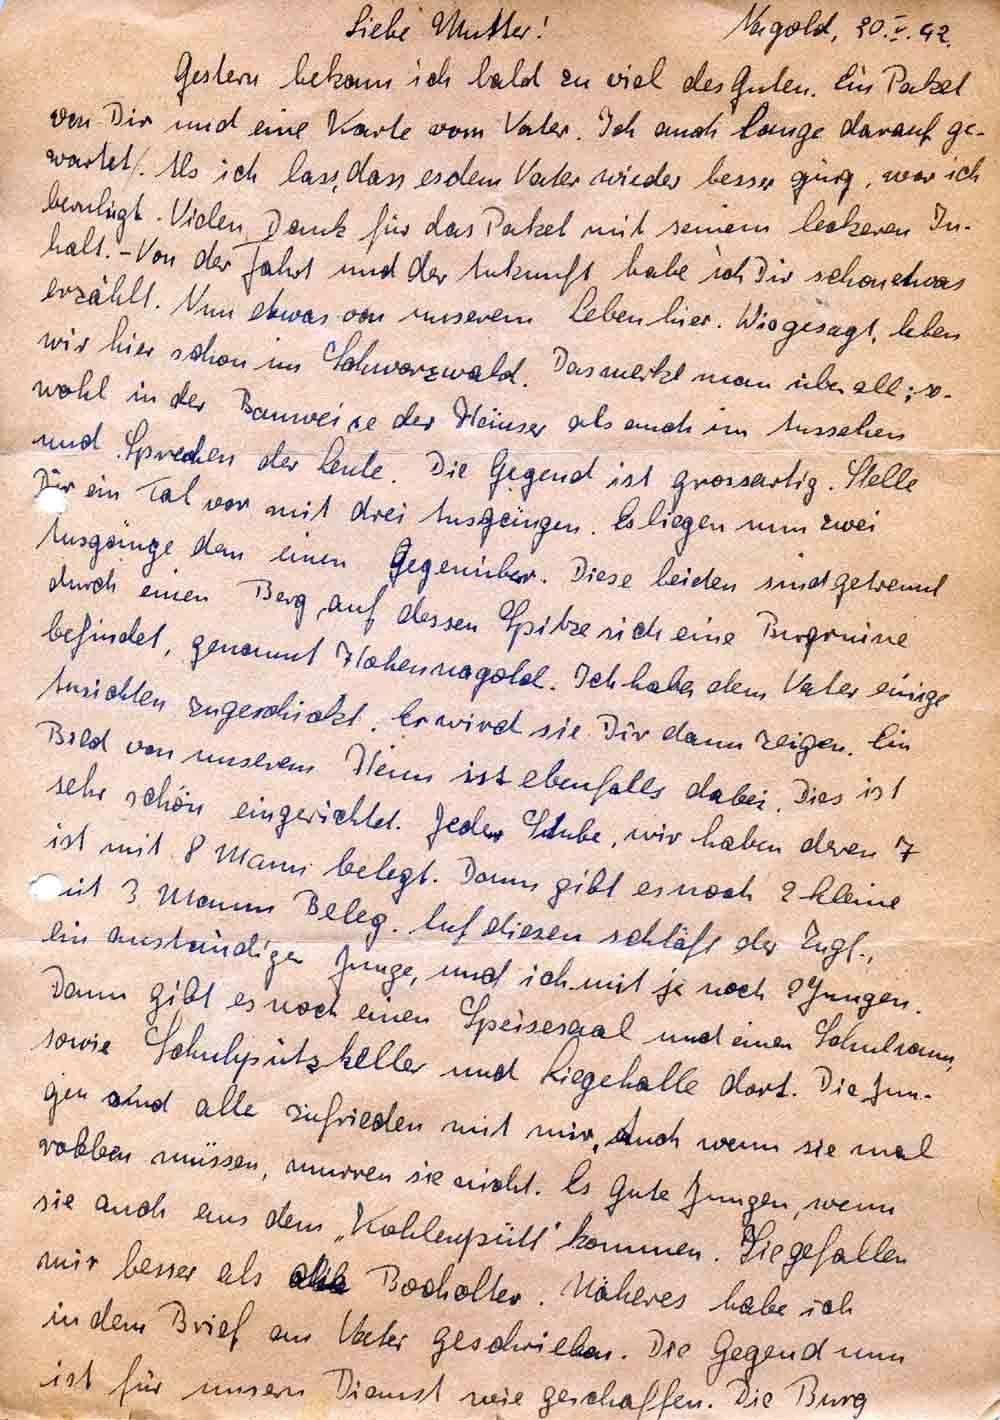 Liebe Mutter! Nagold, 20.V.42.
Gestern bekam ich bald zu viel des Guten. Ein Paket
von Dir und eine Karte vom Vater. Ich auch lange darauf ge-
wartet. Als ich lass, dass es dem Vater wieder besser ging, war ich
beruhigt. Vielen Dank für das Paket mit seinem leckeren In-
halt. - Von der Fahrt und der Ankunft habe ich Dir schon etwas
erzählt. Nun etwas von unserem Leben hier. Wie gesagt, leben
wir hier schon im Schwarzwald. Das merkt man überall; so-
wohl in der Bauweise der Häuser als auch im Aussehen
und Sprechen der Leute. Die Gegend ist grossartig. Stelle
Dir ein Tal vor mit drei Ausgängen. Es liegen nun zwei
Ausgänge dem einen Gegenüber. Diese beiden sind getrennt
durch einen Berg, auf dessen Spitze sich eine Burgruine
befindet, genannt Hohennagold. Ich habe dem Vater einige
Ansichten zugeschickt. Er wird sie Dir dann zeigen. Ein
Bild von unserem Heim ist ebenfalls dabei. Dies ist
sehr schön eingerichtet. Jeder Stube, wir haben deren 7
ist mit 8 Mann belegt. Dann gibt es noch 2 kleine
mit 3 Mann Beleg. Auf diesen schläft der Zugf.,
ein anständiger Junge, und ich mit je noch 2 Jungen.
Dann gibt es noch einen Speisesaal und einen Schulraum,
sowie Schuhputzkeller und Liegehalle dort. Die Jun-
gen sind alle zufrieden mit mir. Auch wenn sie mal
robben müssen, murren sie nicht. Es gute Jungen, wenn
sie auch aus dem „Kohlenpütt" kommen. Sie gefallen
mir besser als Bocholter. Näheres habe ich
in dem Brief an Vater geschrieben. Die Gegend nun
ist für unsern Dienst wie geschaffen. Die Burg